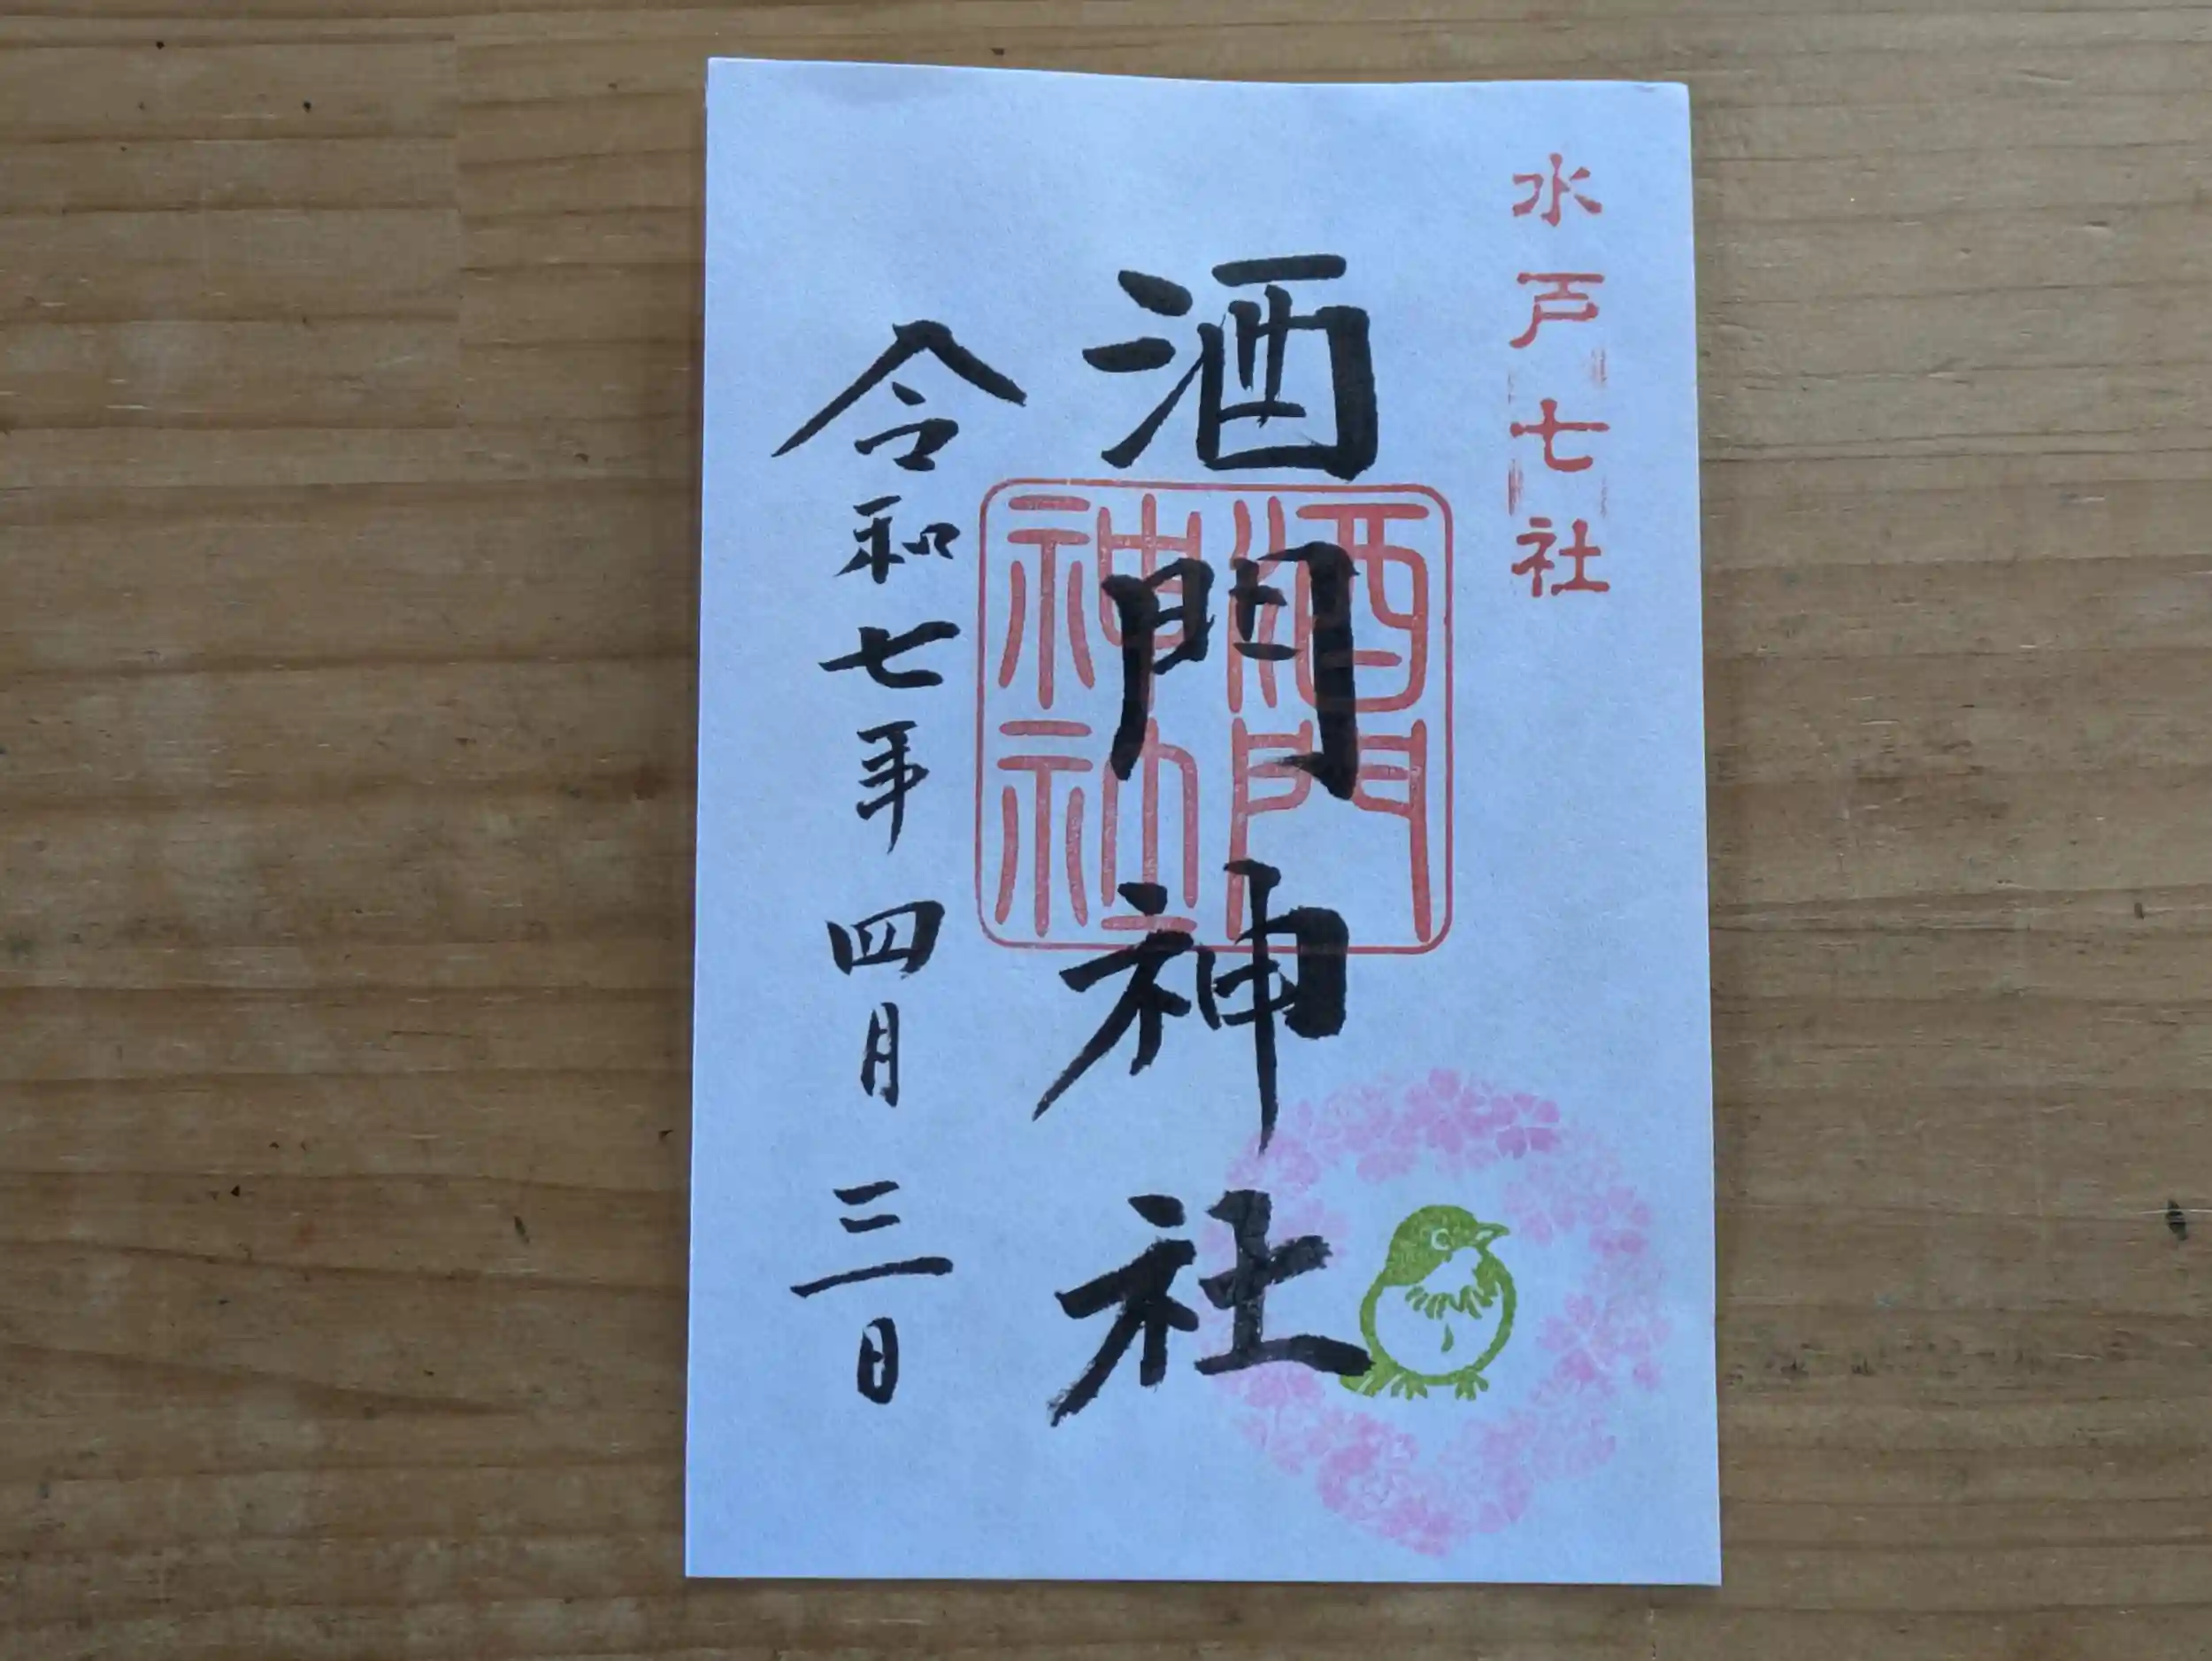 水戸七社
酒門神社
酒門
神社
令和七年四月三日